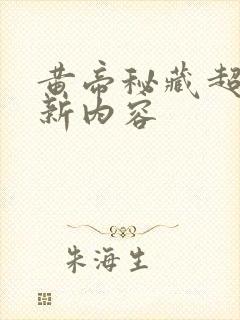 黄帝秘藏超
新内容
朱海生